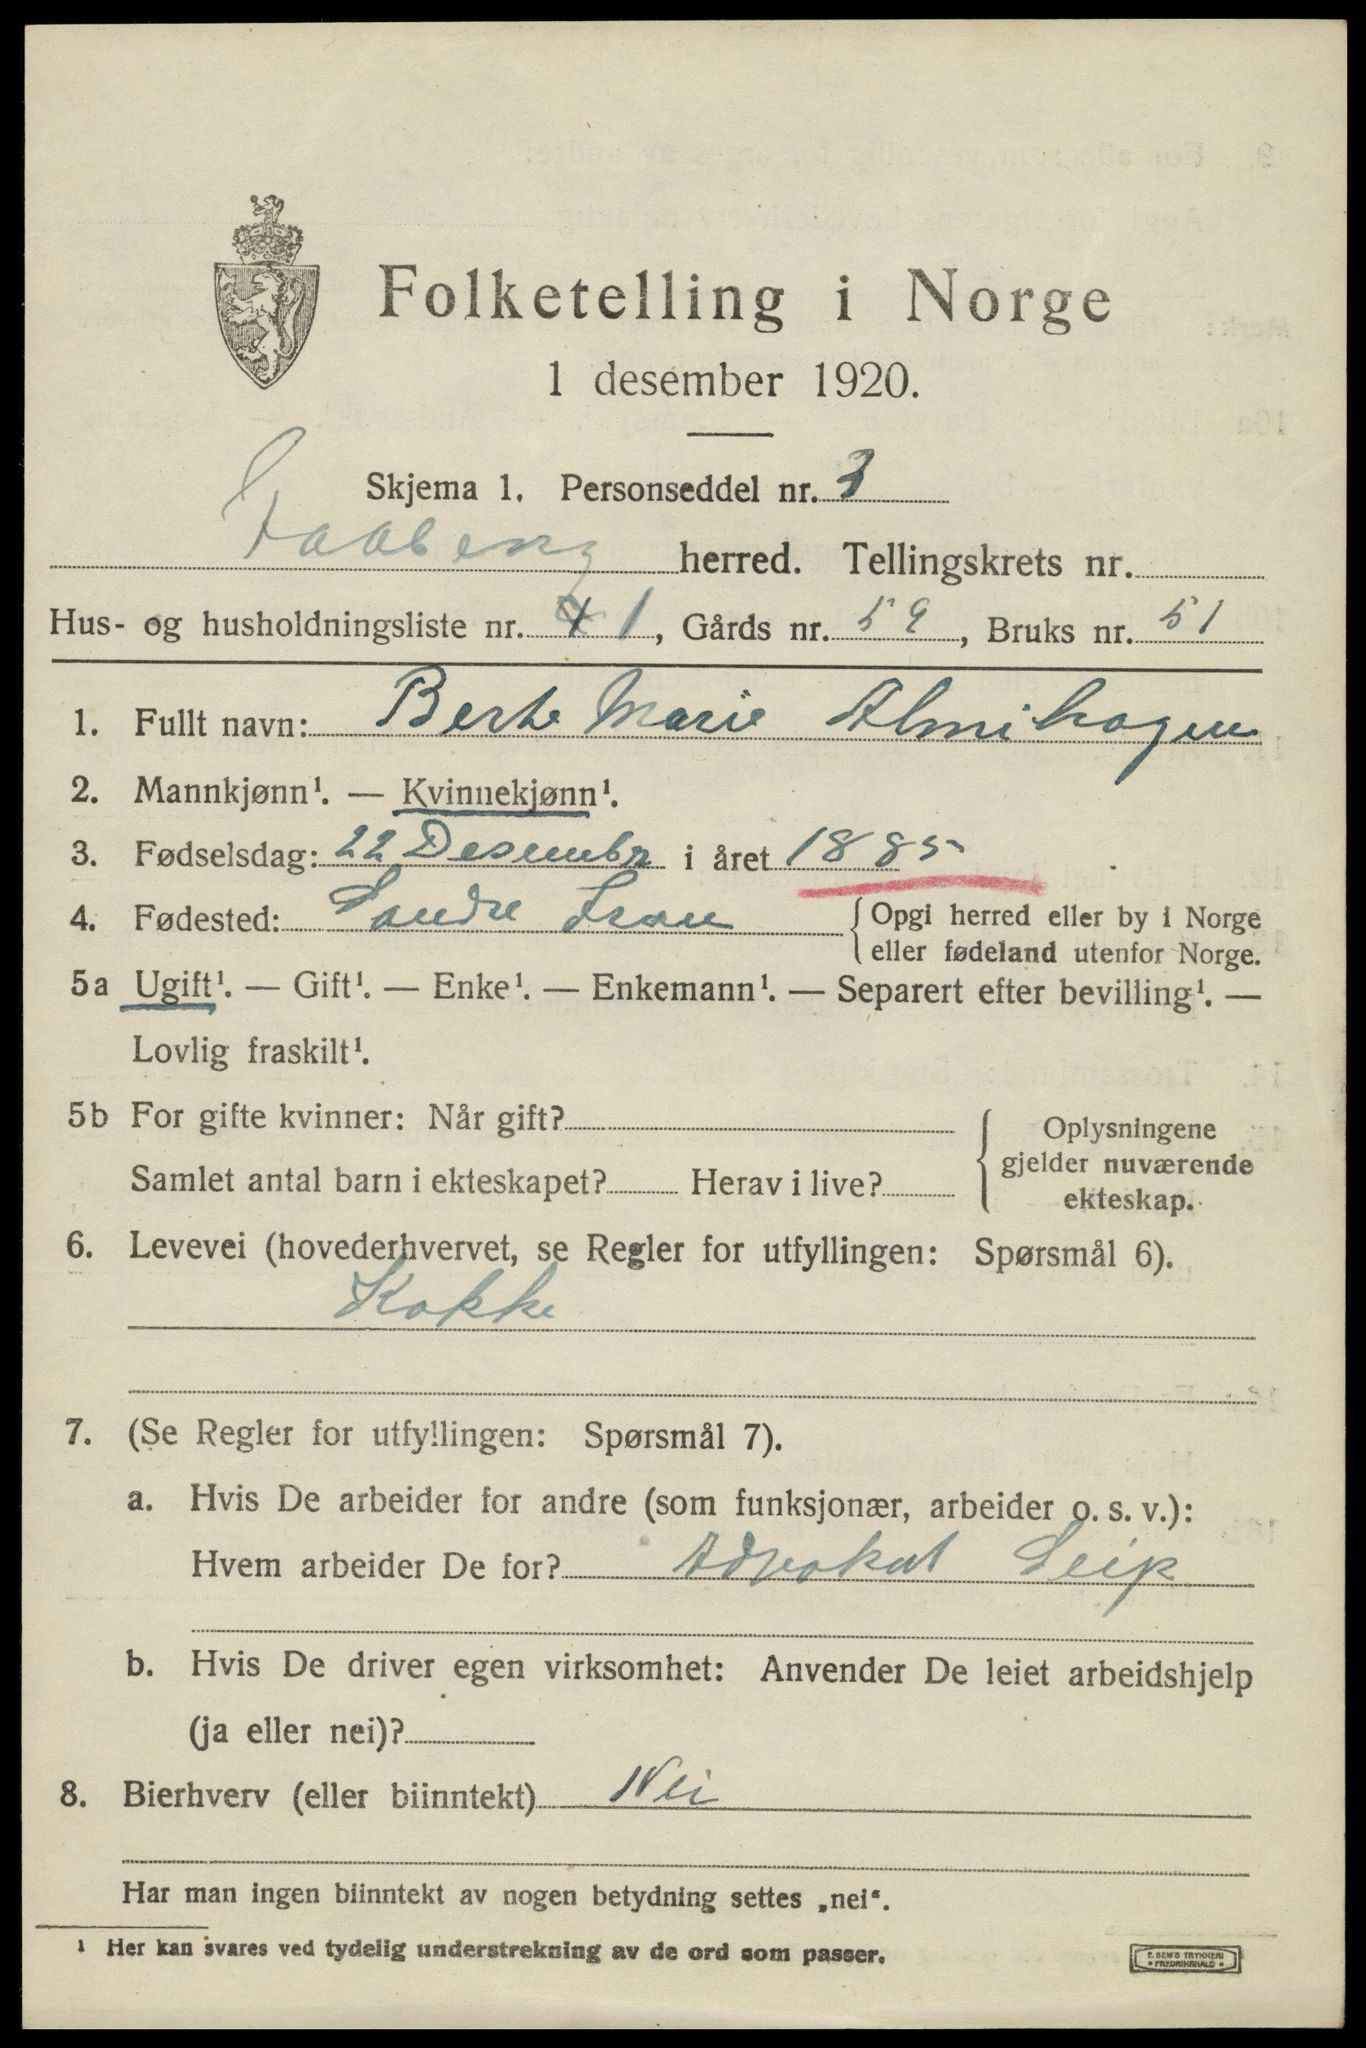 Folketelling i Norge
1 desember 1920.
Skjema 1. Personseddel nr. 3
Faaberg herred. Tellingskrets nr.
Hus- og husholdningsliste nr. 1, Gårds nr. 59, Bruks nr. 51
1. Fullt navn: Berte Marie Almihagen
2. Mannkjønn¹. — Kvinnekjønn¹.
3. Fødselsdag: 22 Desember i året 1885
4. Fødested: Søndre Fron { Opgi herred eller by i Norge
eller fødeland utenfor Norge.
5a Ugift¹. — Gift¹. — Enke¹. — Enkemann¹. — Separert efter bevilling¹. —
Lovlig fraskilt¹.
5b For gifte kvinner: Når gift?
Samlet antal barn i ekteskapet? Herav i live?
{ Oplysningene
gjelder nuværende
ekteskap.
6. Levevei (hovederhvervet, se Regler for utfyllingen: Spørsmål 6).
Kokke
7. (Se Regler for utfyllingen: Spørsmål 7).
a. Hvis De arbeider for andre (som funksjonær, arbeider o. s. v.):
Hvem arbeider De for? Advokat Seip
b. Hvis De driver egen virksomhet: Anvender De leiet arbeidshjelp
(ja eller nei)?
8. Bierhverv (eller biinntekt) Nei
Har man ingen biinntekt av nogen betydning settes „nei“.
¹ Her kan svares ved tydelig understrekning av de ord som passer.
E. SEM'S TRYKKERI
* FREDRIKSHALD *